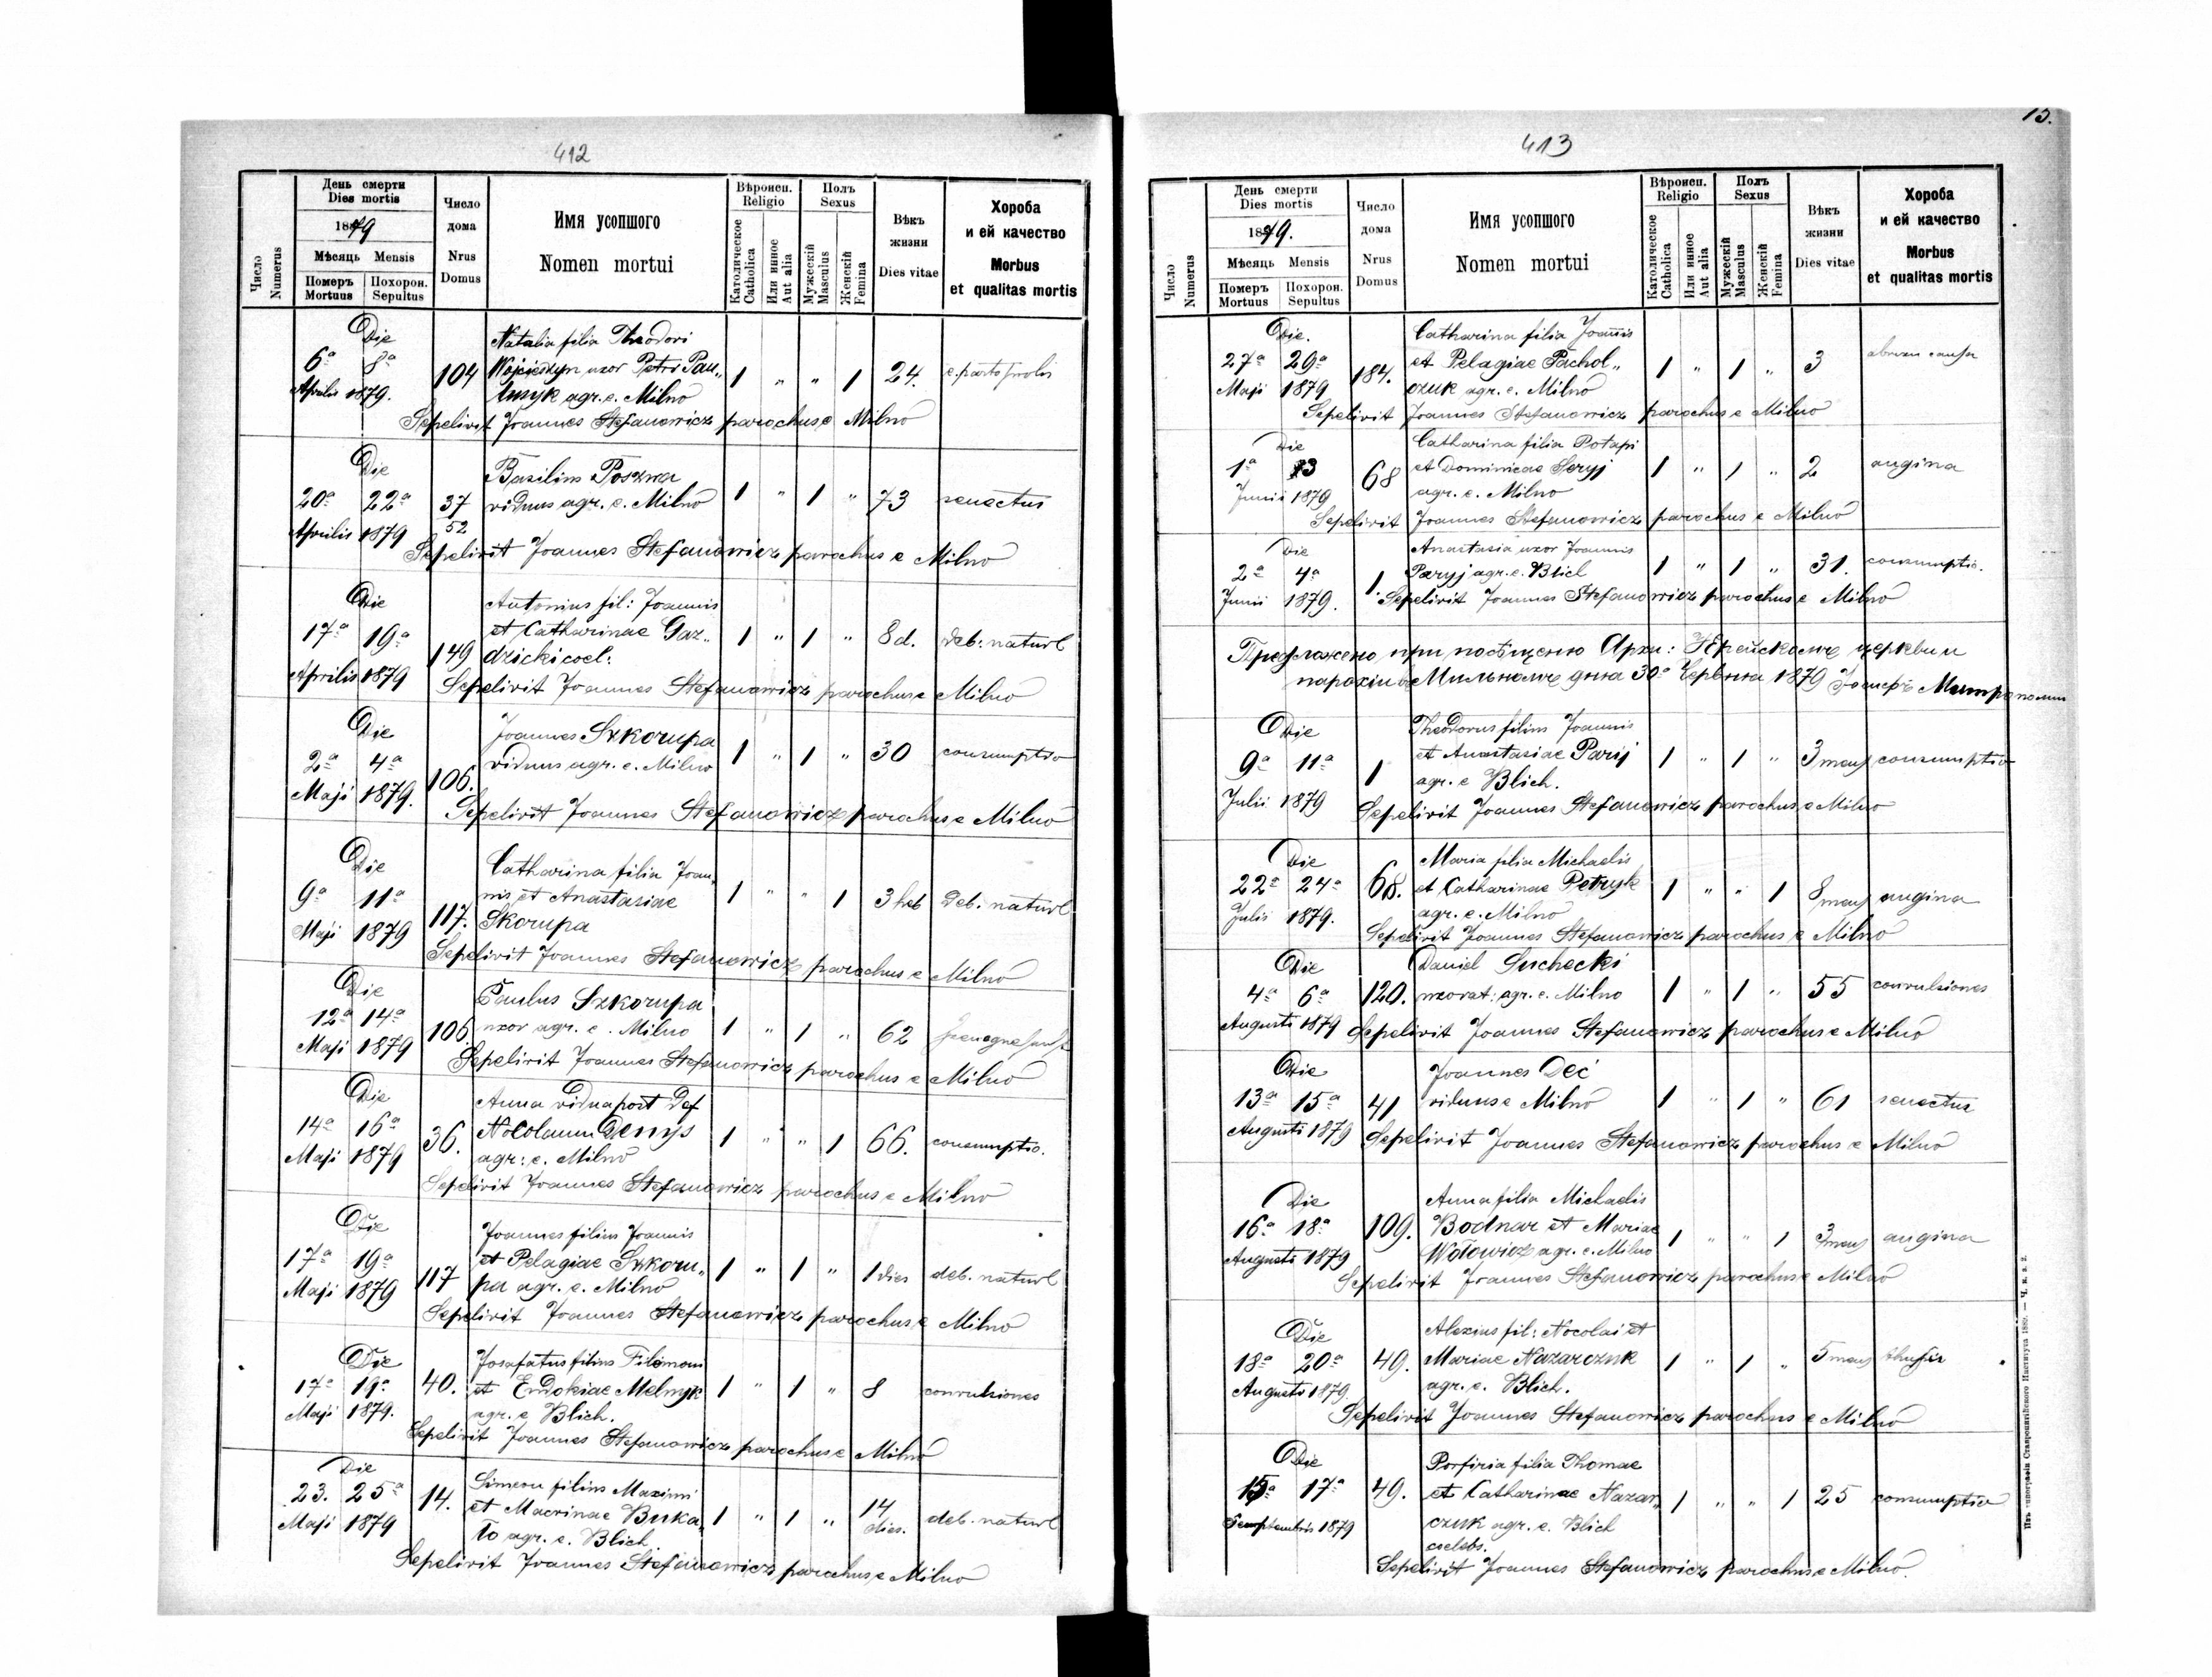 412
День смерти
Dies mortis
1879
Число
Numerus
Мѣсяць Mensis
Померъ
Mortuus
Похорон.
Sepultus
Число
дома
Nrus
Domus
Имя усопшого
Nomen mortui
Вѣроисп.
Religio
Католическое
Catholica
Или инное
Aut alia
Полъ
Sexus
Мужескій
Masculus
Женскій
Femina
Вѣкъ
жизни
Dies vitae
Хороба
и ей качество
Morbus
et qualitas mortis
Die
Natalia filia Theodori
6a 8a 104 uxor Petri Pau„ 1 „ „ 1 24. e partu prolis
Aprilis 1879. agr. e. Milno
Sepelivit Joannes Stefanowicz parochus e Milno
Die
Basilius Poszwa
20a 22a 37 viduus agr. e. Milno 1 „ 1 „ 73 senectus
52
Aprilis 1879
Sepelivit Joannes Stefanowicz parochus e Milno
Die
Antonius fil: Joannis
17a 19a et Catharinae Gaz„ 1 „ 1 „ 8 d. deb: naturl
149 dzicki coel:
Aprilis 1879
Sepelivit Joannes Stefanowicz parochus e Milno
Die
Joannes Szkorupa
2a 4a viduus agr. e. Milno 1 „ 1 „ 30 consumptio
Maji 1879. 106.
Sepelivit Joannes Stefanowicz parochus e Milno
Die
Catharina filia Joan„
9a 11a nis et Anastasiae 1 „ „ 1 3 heb deb. naturl
Maji 1879 117. Skorupa
Sepelivit Joannes Stefanowicz parochus e Milno
Die
Paulus Szkorupa
12a 14a 106 uxor agr. e. Milno 1 „ 1 „ 62
Maji 1879
Sepelivit Joannes Stefanowicz parochus e Milno
Die
Anna vidua post Def
14a 16a 36. Nocolaum Denys 1 „ „ 1 66. consumptio.
Maji 1879 agr: e. Milno
Sepelivit Joannes Stefanowicz parochus e Milno
Die
Joannes filius Joannis
17a 19a et Pelagiae Szkoru„ 1 „ 1 „ 1 dies deb. naturl
Maji 1879 117 pa agr. e. Milno
Sepelivit Joannes Stefanowicz parochus e Milno
Die
Josafatus filius Filimoni
17a 19a 40. et Eudokiae Melnyk 1 „ 1 „ 8 convulsiones
Maji 1879. agr. e Blich.
Sepelivit Joannes Stefanowicz parochus e Milno
Die
Simeon filius Maximi
23. 25a 14. et Macrinae Buka„ 1 „ 1 „ 14 dies. deb. naturl
Maji 1879 ło agr. e. Blich
Sepelivit Joannes Stefanowicz parochus e Milno
15.
413
День смерти
Dies mortis
1879.
Число
Numerus
Мѣсяць Mensis
Померъ
Mortuus
Похорон.
Sepultus
Число
дома
Nrus
Domus
Имя усопшого
Nomen mortui
Вѣроисп.
Religio
Католическое
Catholica
Или инное
Aut alia
Полъ
Sexus
Мужескій
Masculus
Женскій
Femina
Вѣкъ
жизни
Dies vitae
Хороба
и ей качество
Morbus
et qualitas mortis
Die.
Catharina filia Joannis
27a 29a 184. et Pelagiae Pachol„ 1 „ 1 „ 3
Maji 1879 czuk agr. e. Milno
Sepelivit Joannes Stefanowicz parochus e Milno
Die
Catharina filia Potapi
1a 3 68 et Dominicae Seryj 1 „ 1 „ 2 angina
Junii 1879 agr. e. Milno
Sepelivit Joannes Stefanowicz parochus e Milno
Die
Anastasia uxor Joannis
2a 4a 1. Paryj agr. e. Blich 1 „ 1 „ 31. consumptio.
Junii 1879.
Sepelivit Joannes Stefanowicz parochus e Milno
Предложено при посѣщеню Архи: Іерейскомъ церкви и
парохіи въ Мильномъ дня 30а Червня 1879 Іосифъ Митрополит
Die
Theodorus filius Joannis
9a 11a 1 et Anastasiae Parij 1 „ 1 „ 3 mens consumptio
Julii 1879 agr. e Blich.
Sepelivit Joannes Stefanowicz parochus e Milno
Die
Maria filia Michaelis
22a 24a 68. et Catharinae Petryk 1 „ „ 1 8 mens angina
Julii 1879. agr. e. Milno
Sepelivit Joannes Stefanowicz parochus e Milno
Die
Daniel Suchecki
4a 6a 120. uxorat: agr. e. Milno 1 „ 1 „ 55 convulsiones
Augusti 1879
Sepelivit Joannes Stefanowicz parochus e Milno
Die
Joannes Deć
13a 15a 41 viduus e Milno 1 „ 1 „ 61 senectus
Augusti 1879
Sepelivit Joannes Stefanowicz parochus e Milno
Die
Anna filia Michaelis
16a 18a 109. Bodnar et Mariae 1 „ „ 1 3 mens angina
Augusti 1879 Wołowicz agr. e. Milno
Sepelivit Joannes Stefanowicz parochus e Milno
Die
Alexius fil: Nocolai et
18a 20a 49. Mariae Nazarczuk 1 „ 1 „ 5 mens
Augusti 1879. agr. e. Blich.
Sepelivit Joannes Stefanowicz parochus e Milno
Die
Porfiria filia Thomae
15a 17a 49. et Catharinae Nazar„ 1 „ „ 1 25 consumptio
Septembris 1879 czuk agr. e. Blich
caelebs.
Sepelivit Joannes Stefanowicz parochus e Milno.